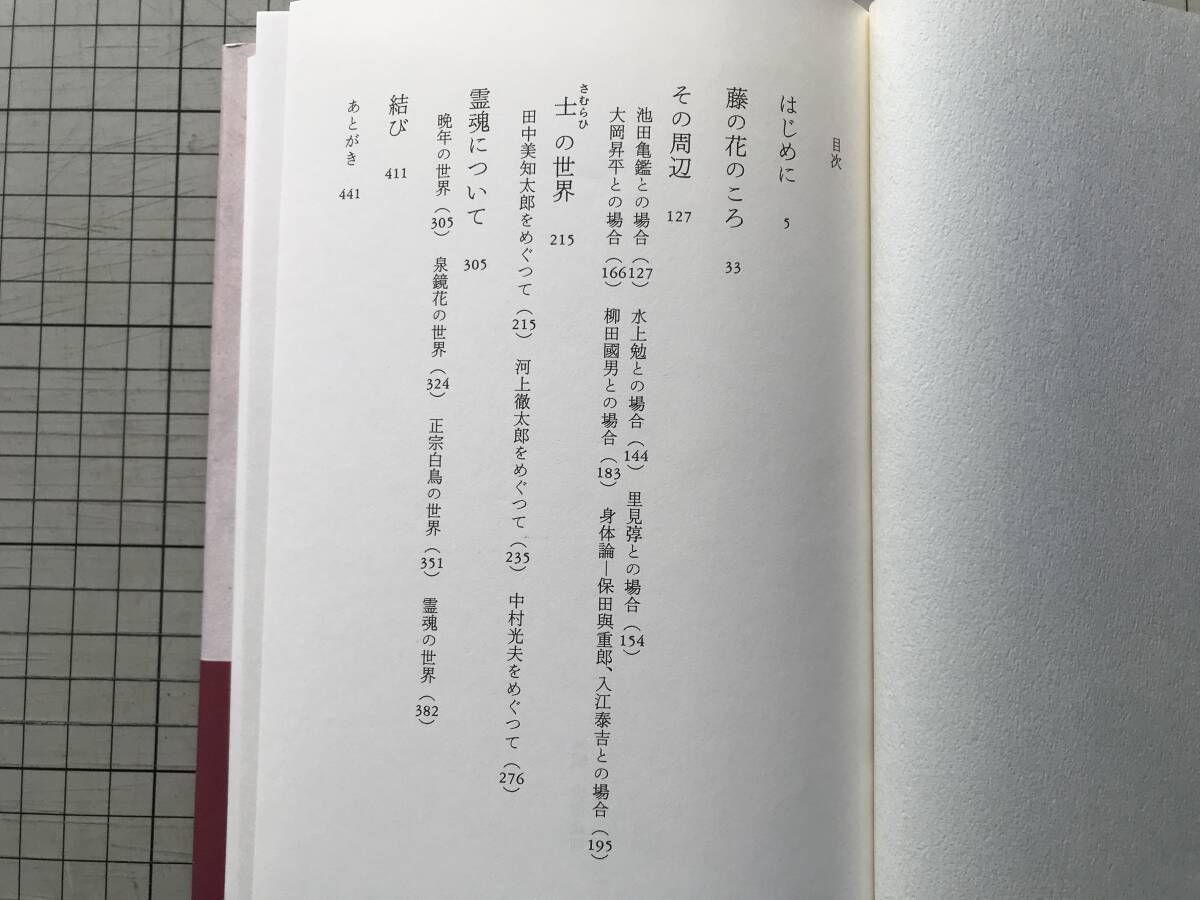 目次
はじめに 5
藤の花のころ 33
その周辺 127
池田亀鑑との場合（127） 水上勉との場合（144） 里見弴との場合（154）
大岡昇平との場合（166） 柳田國男との場合（183） 身体論―保田與重郎、入江泰吉との場合（195）
士の世界 215
さむらひ
田中美知太郎をめぐつて（215） 河上徹太郎をめぐつて（235） 中村光夫をめぐつて（276）
霊魂について 305
晩年の世界（305） 泉鏡花の世界（324） 正宗白鳥の世界（351） 霊魂の世界（382）
結び 411
あとがき 441